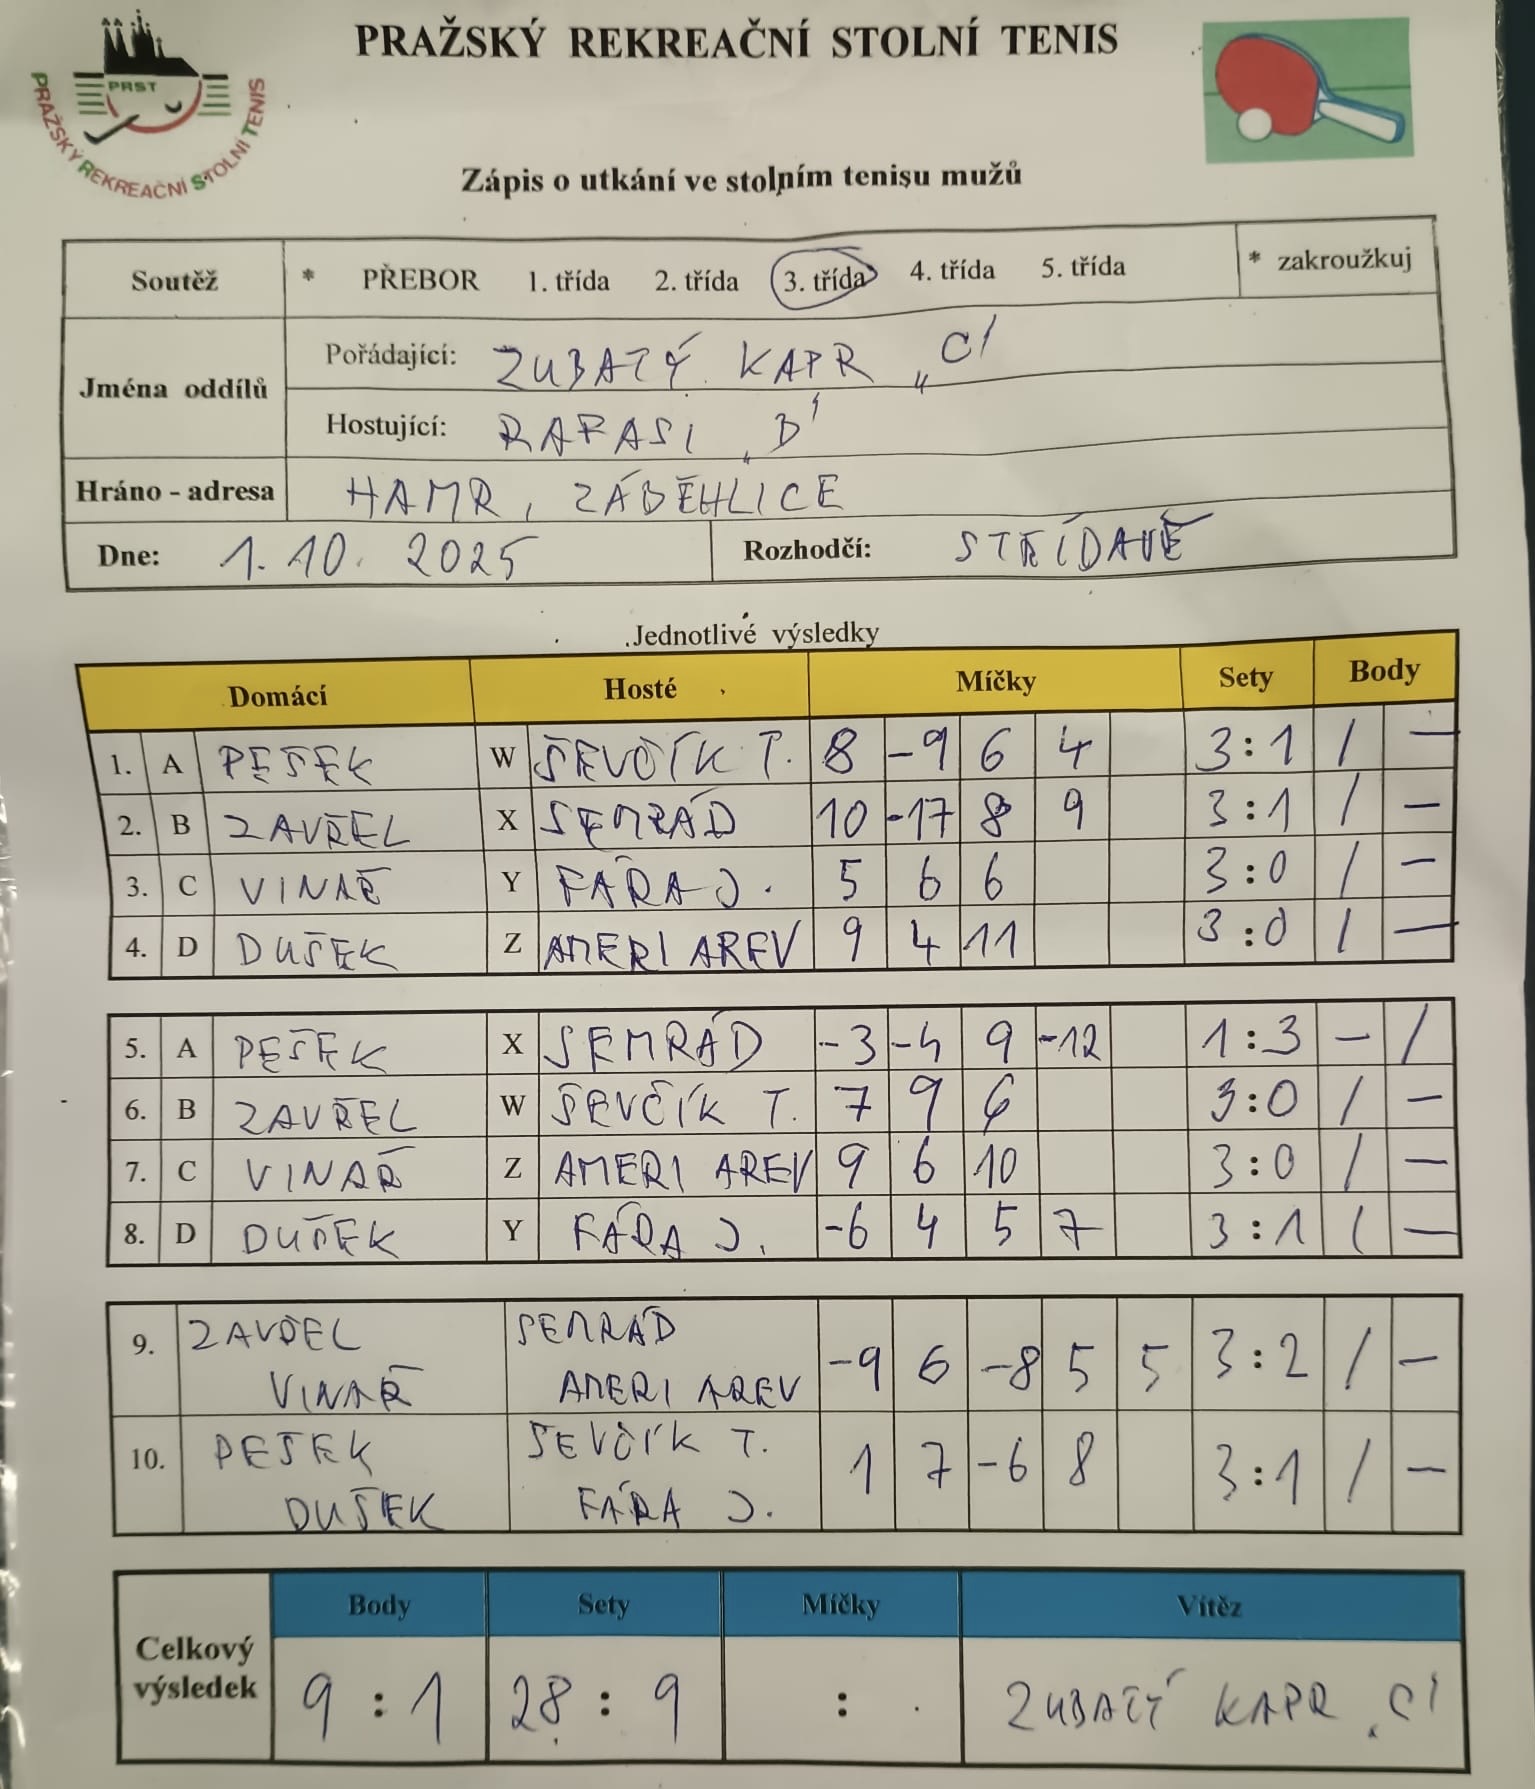 PRAŽSKÝ REKREAČNÍ STOLNÍ TENIS
PRST
PRAŽSKÝ REKREAČNÍ STOLNÍ TENIS
Zápis o utkání ve stolním tenisu mužů
Soutěž * PŘEBOR 1. třída 2. třída 3. třída 4. třída 5. třída * zakroužkuj
Jména oddílů
Pořádající: ZUBATÝ KAPR „C"
Hostující: RAFASI „B"
Hráno - adresa HAMR, ZÁBĚHLICE
Dne: 1. 10. 2025 Rozhodčí: STŘÍDAVĚ
Jednotlivé výsledky
Domácí Hosté Míčky Sety Body
1. A PEŠEK W ŠEVČÍK T. 8 -9 6 4 3:1 / —
2. B ZAVŘEL X SEMRÁD 10 -17 8 9 3:1 / —
3. C VINAŘ Y FÁRA J. 5 6 6 3:0 / —
4. D DUŠEK Z AMERI AREV 9 4 11 3:0 / —
5. A PEŠEK X SEMRÁD -3 -4 9 -12 1:3 — /
6. B ZAVŘEL W ŠEVČÍK T. 7 9 6 3:0 / —
7. C VINAŘ Z AMERI AREV 9 6 10 3:0 / —
8. D DUŠEK Y FÁRA J. -6 4 5 7 3:1 / —
9. ZAVŘEL SEMRÁD
VINAŘ AMERI AREV -9 6 -8 5 5 3:2 / —
10. PEŠEK ŠEVČÍK T.
DUŠEK FÁRA J. 1 7 -6 8 3:1 / —
Celkový výsledek
Body Sety Míčky Vítěz
9 : 1 28 : 9 : ZUBATÝ KAPR „C"